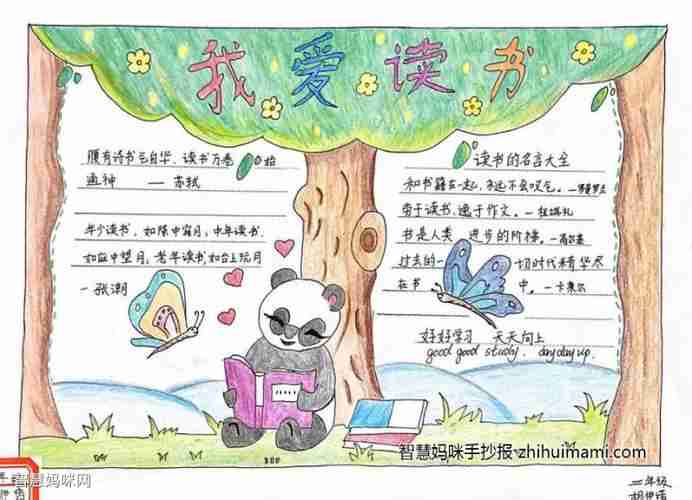 我爱读书
腹有诗书气自华,读书万卷始
通神 — 苏轼
年少读书,如隙中窥月;中年读书,
如庭中望月;老年读书,如台上玩月
— 张潮
读书的名言大全
和书籍在一起,永远不会叹气。—罗曼罗兰
劳于读书,逸于作文。—程端礼
书是人类 进步的阶梯。—高尔基
过去的一切时代精华尽
在书中。—卡莱尔
好好学习 天天向上
good good study, day day up.
智慧妈咪手抄报 zhihuimami.com
智慧妈咪网
二年级